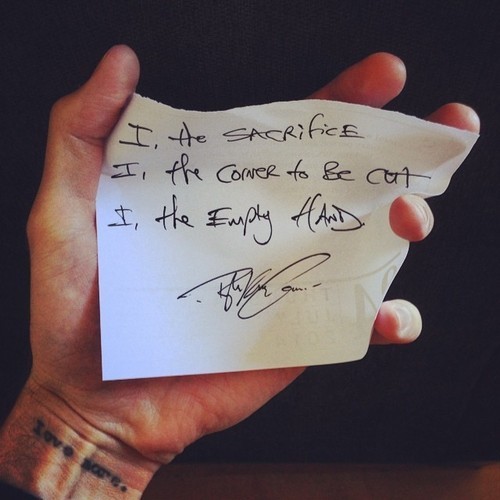 I, the SACRIFICE
I, the CORNER to BE CUT
I, the EMPTY HAND.
love more.